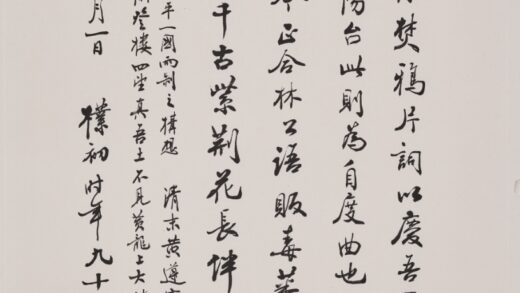 焚鴉片詞以慶吾
陽台此則為自度曲也
正合林公語販毒
千古紫荊花長伴
平一國兩制之構想 清末黃遵
登樓四望真吾土不見黃龍上大
月一日 樸初时年九十